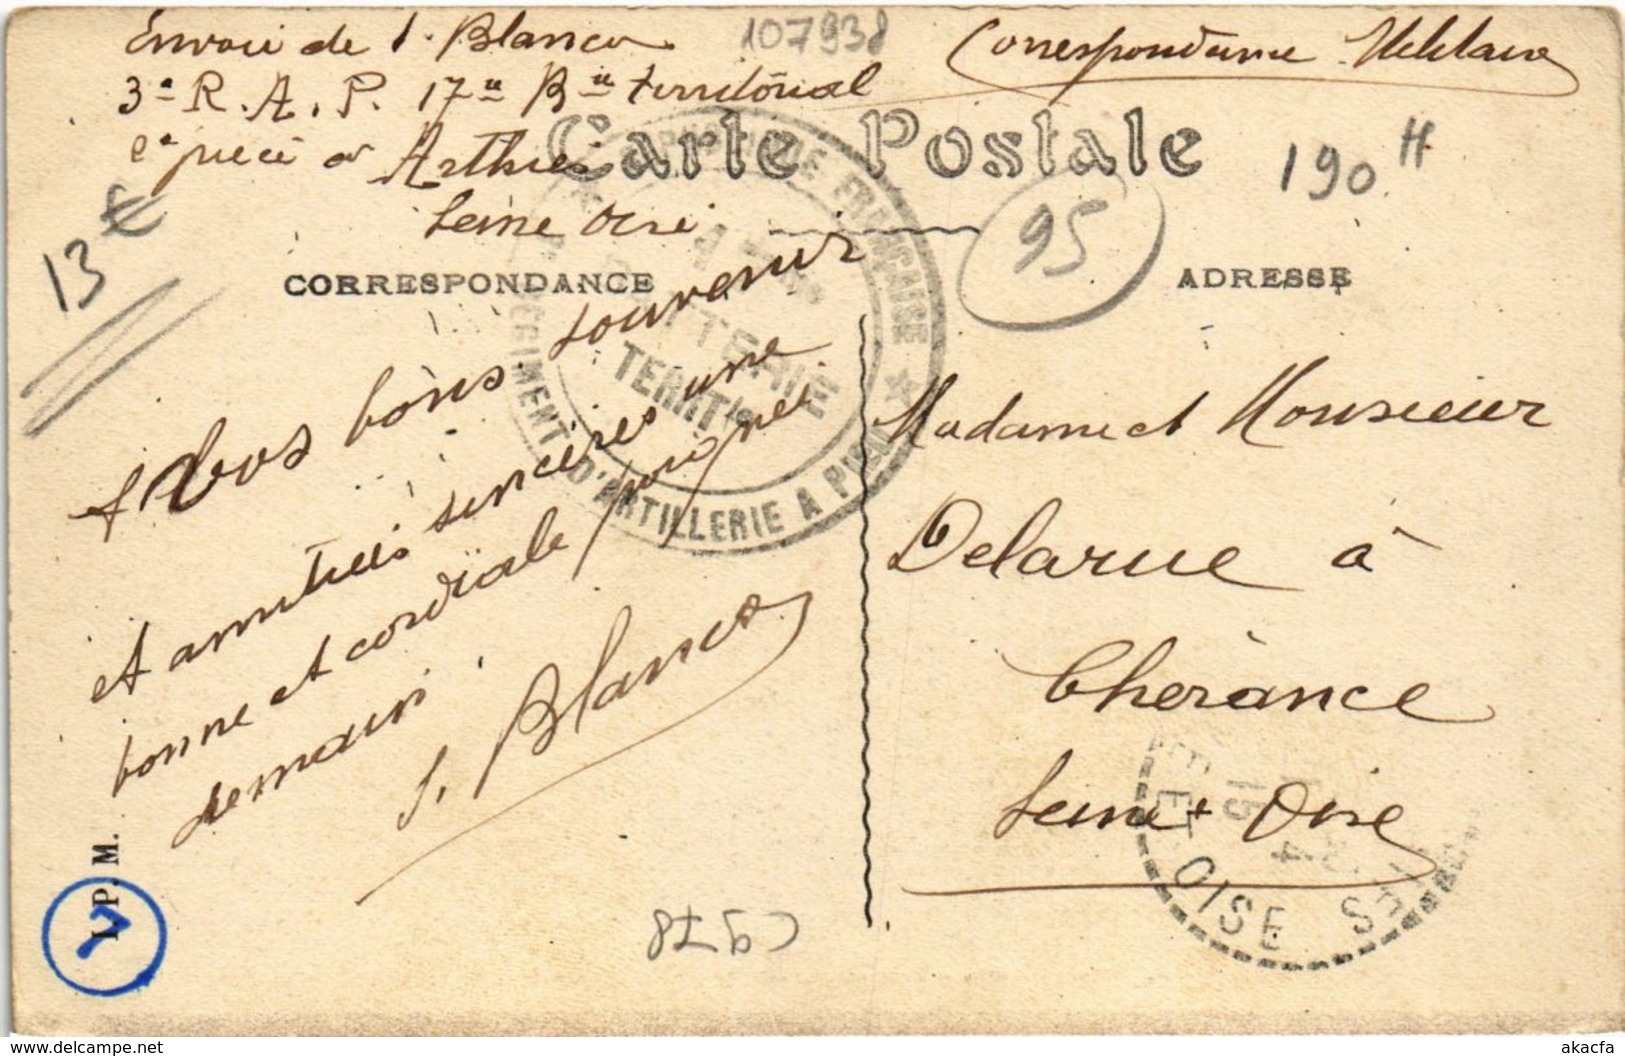 Envoie de S. Blancor
3e R.A.P. 17e Bie territorial
pièce à Arthies
Seine Oise
107938
Correspondance Militaire
Carte Postale
190 H
95
13 €
CORRESPONDANCE
ADRESSE
RÉPUBLIQUE FRANÇAISE
BATTERIE
TERRITle
RÉGIMENT D'ARTILLERIE A PIED
A vos bons souvenir
et amitiés sincères une
bonne et cordiale poignée
de main
S. Blancor
Madame et Monsieur
Delarue à
Chérance
Seine et Oise
15 4
SEINE ET OISE
I.P.M.
C9578
delcampe.net
akacfa